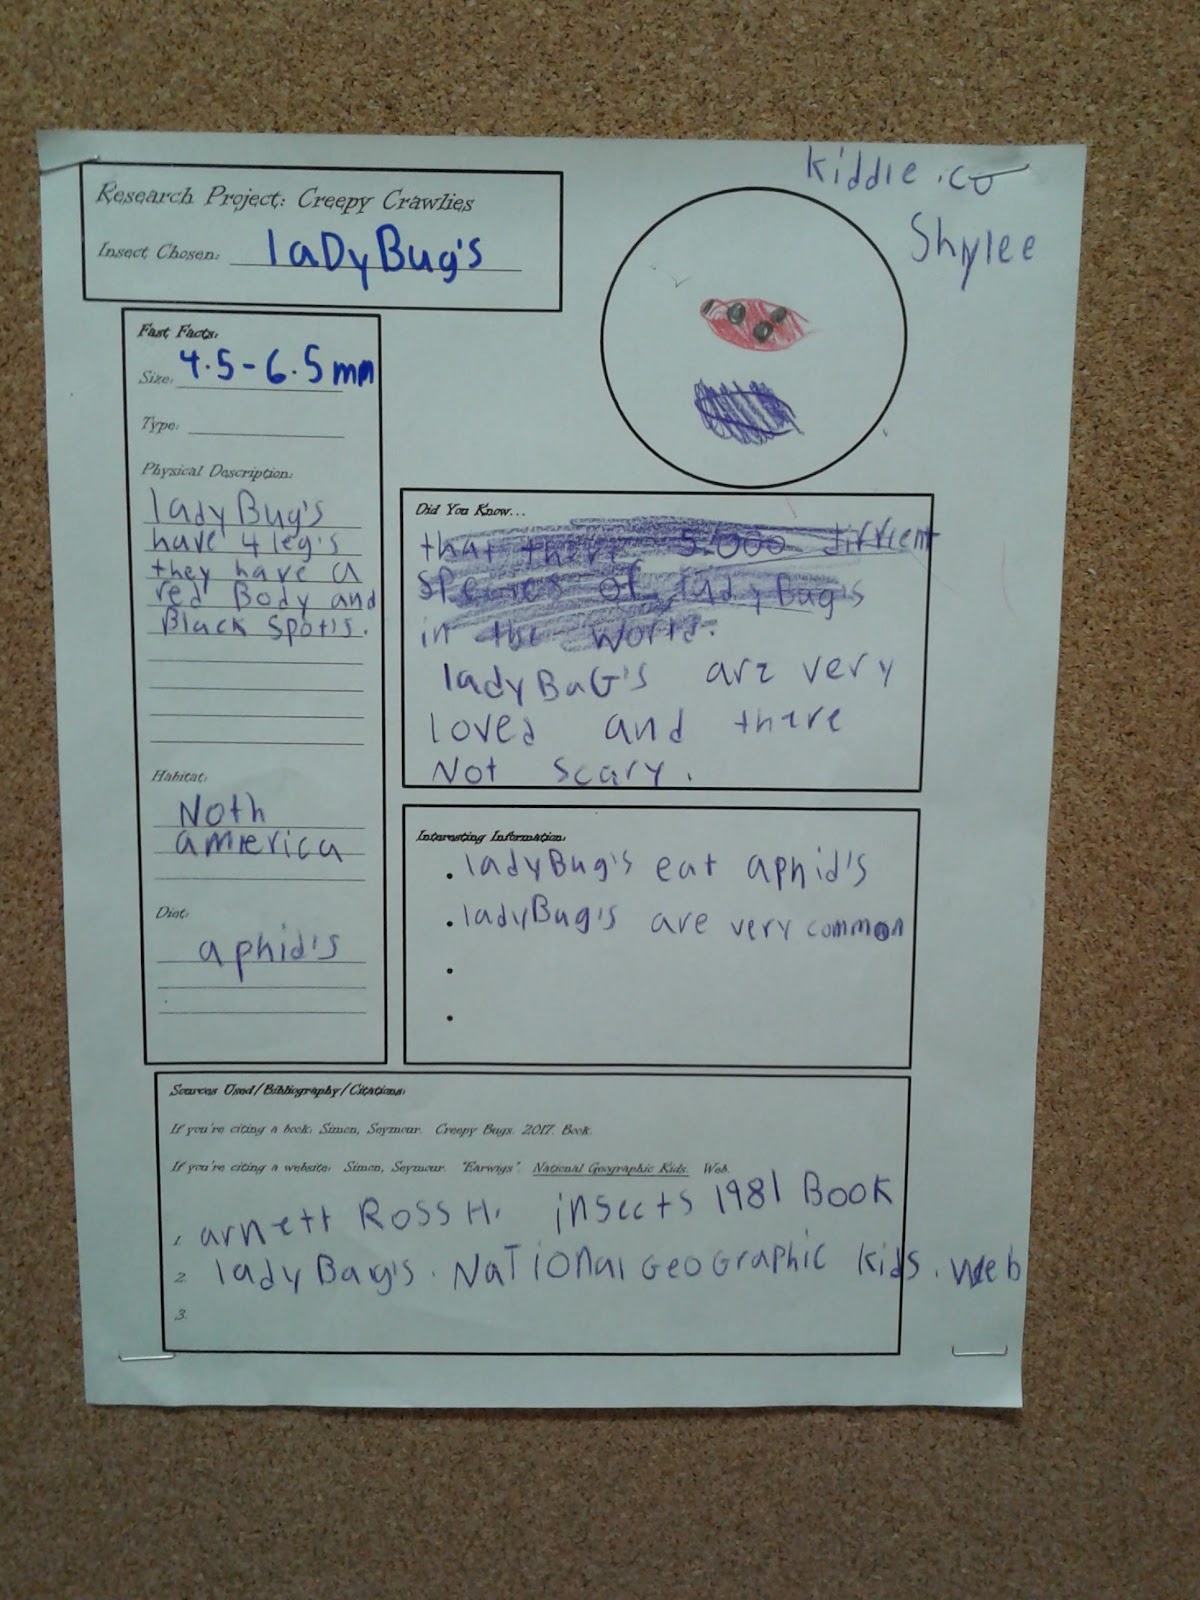 Kiddie.co
Shylee
Research Project: Creepy Crawlies
Insect Chosen: laDyBug's
Fast Facts:
Size: 4.5-6.5mm
Type:
Physical Description:
ladyBug's
have 4 leg's
they have a
red Body and
Black spot's.
Habitat:
Noth
america
Diet:
aphid's
Did You Know...
that there 5.000 diffrent
species of ladyBug's
in the world.
ladyBuG's are very
loved and there
Not scary.
Interesting Information:
• ladyBug's eat aphid's
• ladyBug's are very common
•
•
Sources Used/Bibliography/Citations:
If you're citing a book: Simon, Seymour. Creepy Bugs. 2017. Book.
If you're citing a website: Simon, Seymour. "Earwigs". National Geographic Kids. Web.
1. arnett Ross H. insects 1981 Book
2. ladyBug's. NaTional GeoGraphic Kids. Web
3.